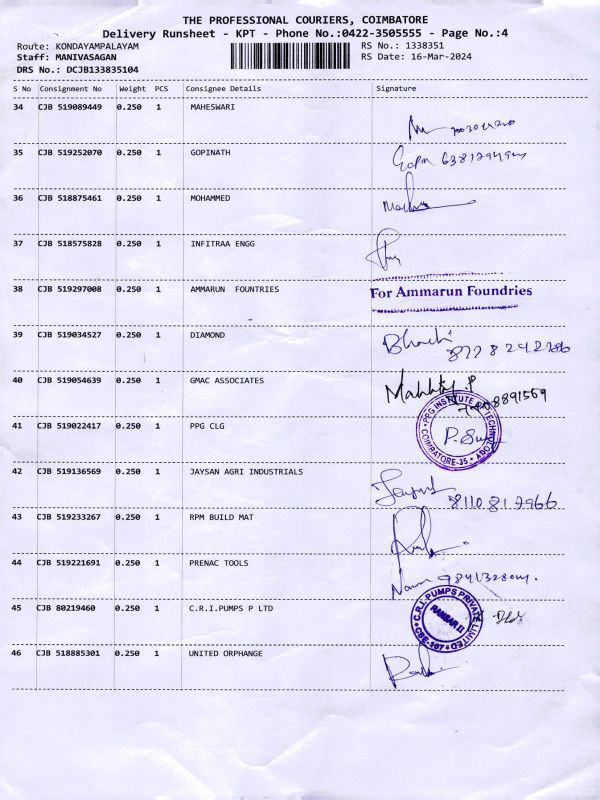 THE PROFESSIONAL COURIERS, COIMBATORE
Delivery Runsheet - KPT - Phone No.:0422-3505555 - Page No.:4
Route: KONDAYAMPALAYAM RS No.: 1338351
Staff: MANIVASAGAN RS Date: 16-Mar-2024
DRS No.: DCJB133835104
S No Consignment No Weight PCS Consignee Details Signature
34 CJB 519089449 0.250 1 MAHESWARI
35 CJB 519252070 0.250 1 GOPINATH
36 CJB 518875461 0.250 1 MOHAMMED
37 CJB 518575828 0.250 1 INFITRAA ENGG
38 CJB 519297008 0.250 1 AMMARUN FOUNTRIES
For Ammarun Foundries
39 CJB 519034527 0.250 1 DIAMOND
40 CJB 519054639 0.250 1 GMAC ASSOCIATES
41 CJB 519022417 0.250 1 PPG CLG
PPG INSTITUTE
COIMBATORE-35
42 CJB 519136569 0.250 1 JAYSAN AGRI INDUSTRIALS
8110817966
43 CJB 519233267 0.250 1 RPM BUILD MAT
44 CJB 519221691 0.250 1 PRENAC TOOLS
45 CJB 80219460 0.250 1 C.R.I.PUMPS P LTD
C.R.I. PUMPS PRIVATE LIMITED
46 CJB 518885301 0.250 1 UNITED ORPHANGE